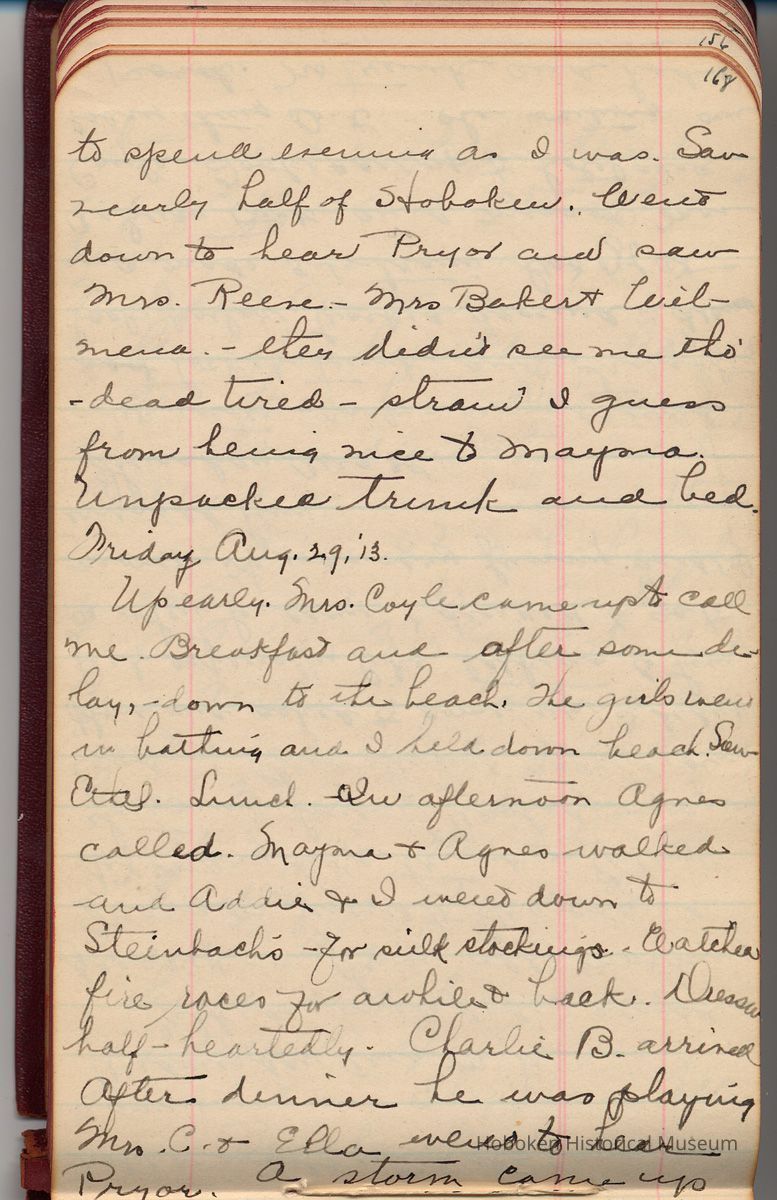 156
168
to spend evening as I was. Saw
nearly half of Hoboken. Went
down to hear Pryor and saw
Mrs. Reese. - Mrs Baker & Wil-
mena. - they didn't see me tho'
- dead tired - strain I guess
from being nice to Mayma.
Unpacked trunk and bed.
Friday Aug. 29, '13.
Up early. Mrs. Coyle came up to call
me. Breakfast and after some de-
lay, - down to the beach. The girls went
in bathing and I held down beach. Saw
Ethel. Lunch. In afternoon Agnes
called. Mayma & Agnes walked
and Addie & I went down to
Steinbach's - for silk stockings. Watched
fire races for awhile & back. Dressed
half-heartedly. Charlie B. arrived
After dinner he was playing
Mrs. C. & Ella went to hear
Pryor. A storm came up
Hoboken Historical Museum